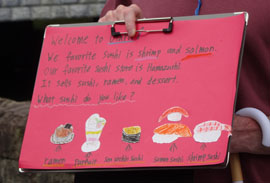 Welcome to
We favorite sushi is shrimp and salmon.
Our favorite sushi store is Hamazushi.
It sells sushi, ramen, and dessert.
What sushi do you like?
ramen parfait sushi salmon sushi shrimp sushi